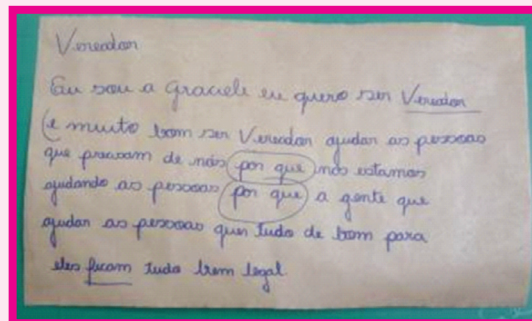 Vereador
Eu sou a Graciele eu quero ser Vereador
(e muito bom ser Vereador ajudar as pessoas
que precisam de nós por que nós estamos
ajudando as pessoas por que a gente que
ajudar as pessoas quer tudo de bom para
eles ficam tudo bem legal